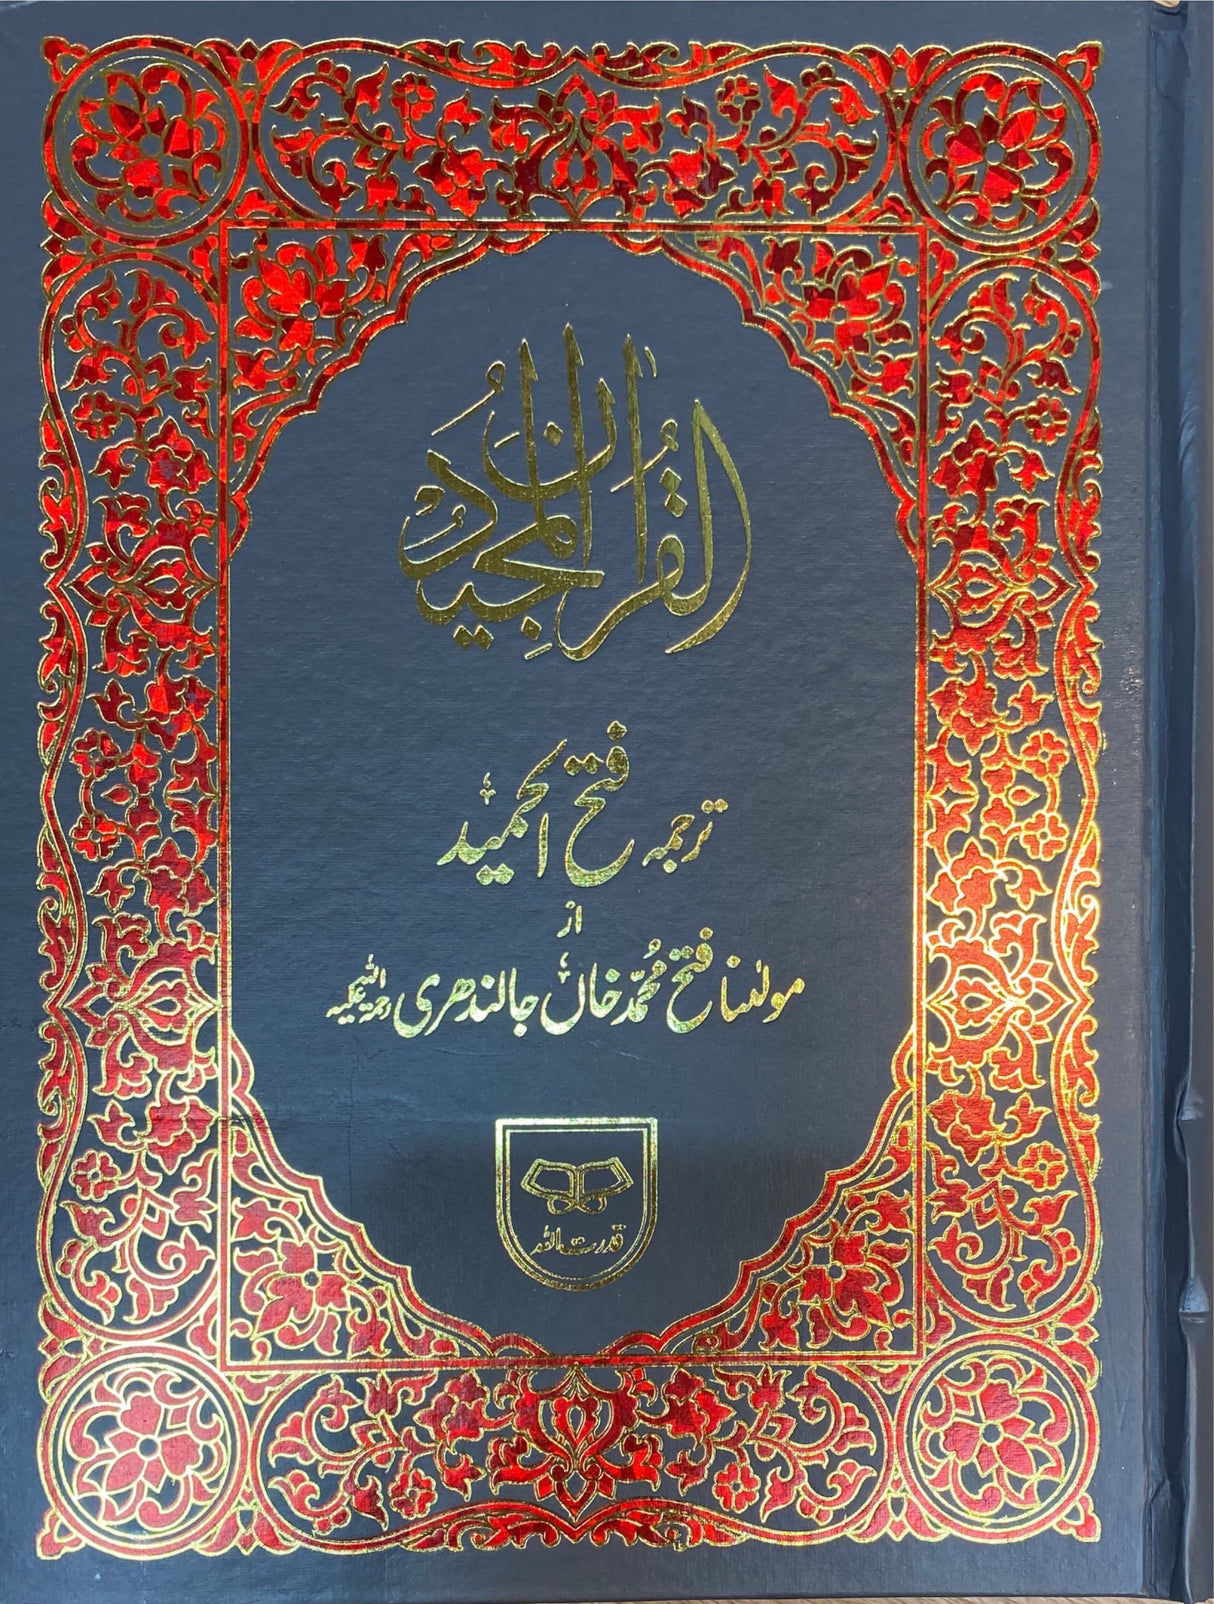 القرآن المجيد
ترجمہ فتح الحمید
از
مولٰینا فتح محمد خاں جالندھری رحمۃ اللہ علیہ
قدرت اللہ